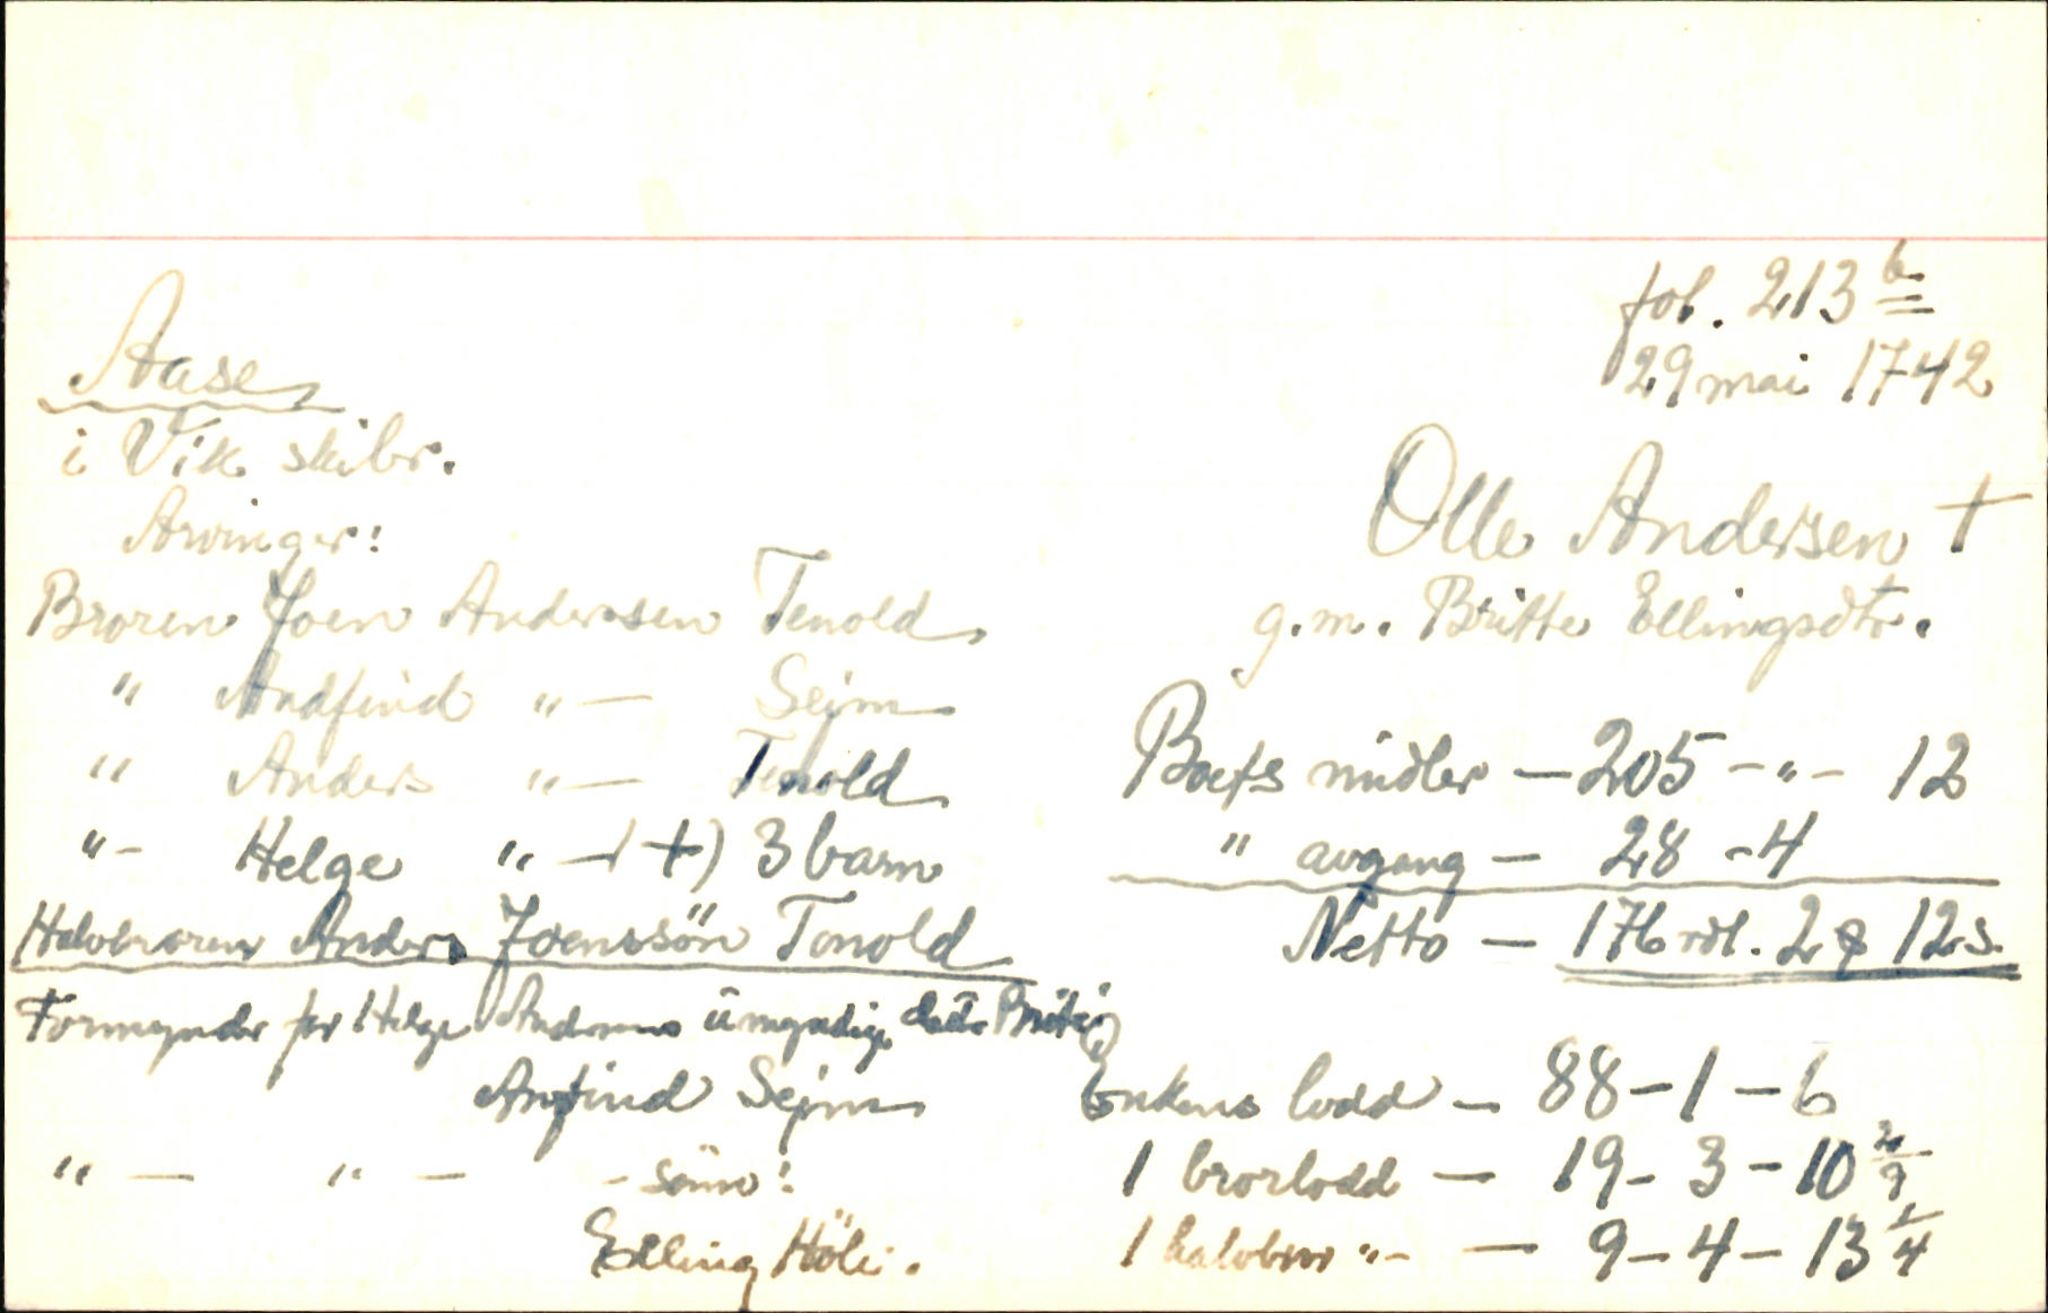 fol. 213 b
29 mai 1742
Aase
i Vik skibr.
Olle Andersen +
g.m. Britte Ellingsdtr.
Arvinger:
Broren Joen Andersen Tenold
" Andfind " — Sejm
" Anders " — Tenold
" - Helge " — (+) 3 barn
Halvbroren Anders Joenssön Tenold
Formynder for Helge Andersens umyndige
Anfind Sejm
" — " — - sönn:
Elling Höli.
Boets midler — 205 - " - 12
" avgang — 28 - 4
Netto — 176 rdl. 2 12 s.
Enkens lodd — 88 - 1 - 6
1 brorlodd — 19 - 3 - 10
1 halvbror " - — 9 - 4 - 13 1/4